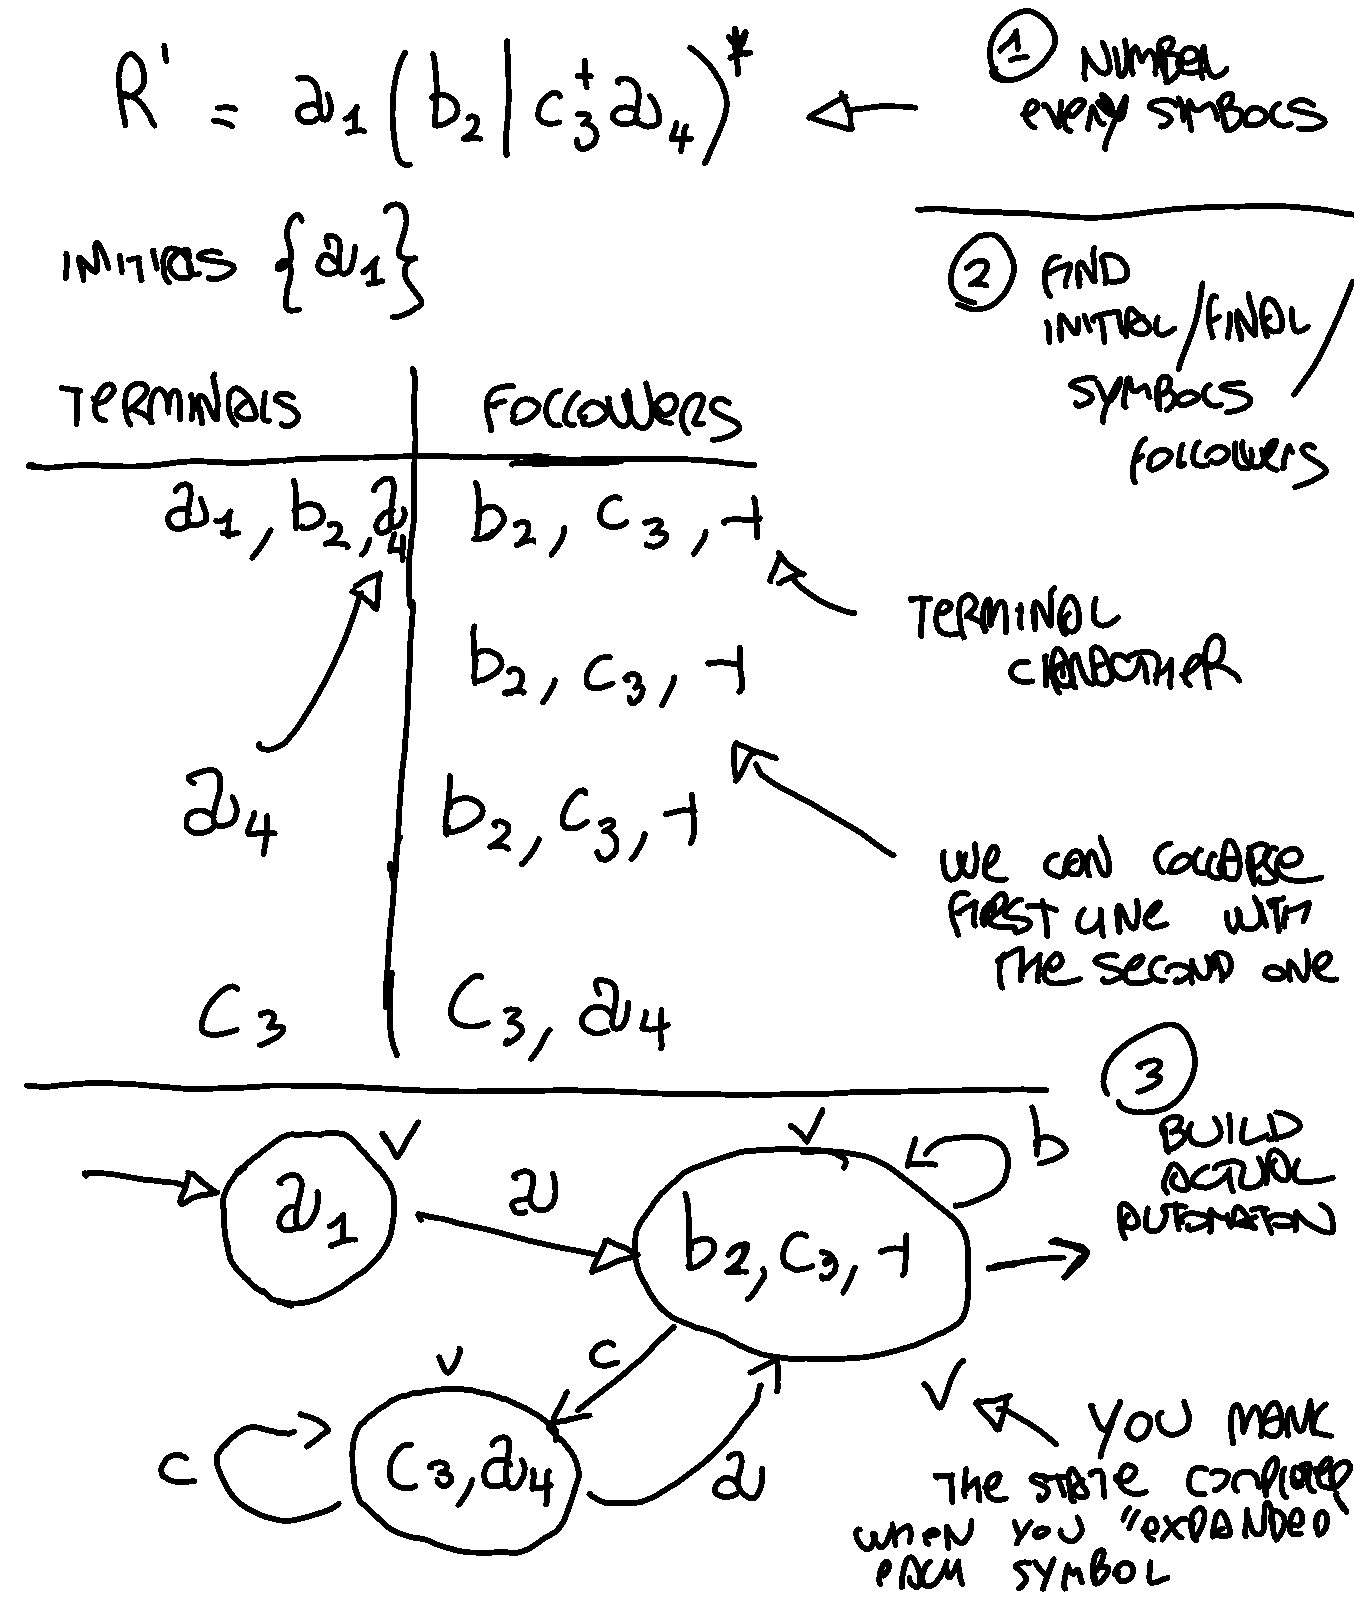 R' = a₁ ( b₂ | c₃⁺ a₄ )*
① NUMBER
EVERY SYMBOLS
INITIALS { a₁ }
② FIND
INITIAL / FINAL /
SYMBOLS
FOLLOWERS
TERMINALS | FOLLOWERS
a₁, b₂, a₄ | b₂, c₃, ⊣
TERMINAL
b₂, c₃, ⊣
a₄ | b₂, c₃, ⊣
WE CAN COLLAPSE
FIRST LINE WITH
THE SECOND ONE
c₃ | c₃, a₄
③
BUILD
ACTUAL
AUTOMATON
a₁
a
b₂, c₃, ⊣
b
c
c
c₃, a₄
a
YOU MARK
THE STATE COMPLETED
WHEN YOU "EXPANDED"
EACH SYMBOL